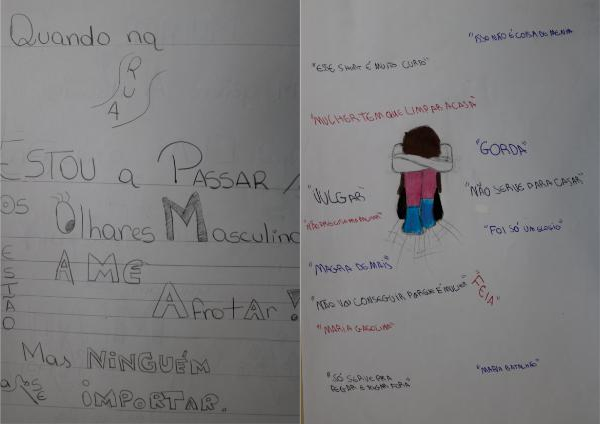 Quando na
RUA
ESTOU a PASSAR
OS Olhares Masculino
ESTÃO
A ME
Afrotar!
Mas NINGUÉM
a SE
IMPORTAR.
"ISSO NÃO É COISA DE MENINA"
"ESSE SHORT É MUITO CURTO"
"MULHER TEM QUE LIMPAR A CASA"
"GORDA"
"VULGAR"
"NÃO SERVE PARA CASAR"
"FOI SÓ UM ELOGIO"
"MAGRA DE MAIS"
"NÃO VAI CONSEGUIR PORQUE É MULHER"
"FEIA"
"MARIA GASOLINA"
"SÓ SERVE PRA
"MARIA BATALHÃO"